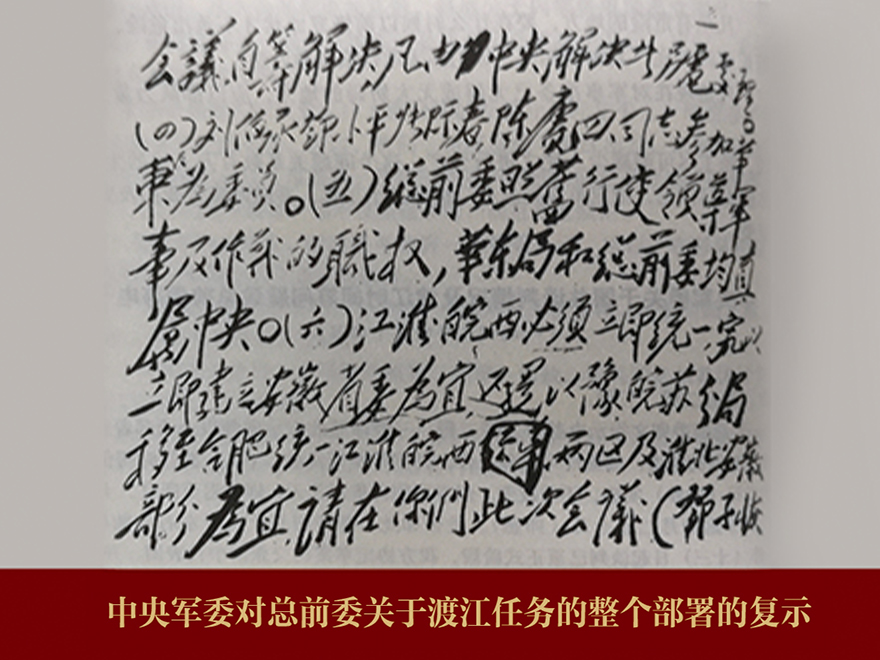 会議自等解决凡由中央解决者属
(四)刘伯承鄧小平张际春陈赓四同志参加華
東為委员。(五)総前委照舊行使领導軍
事及作战的職权,華东局和総前委均直
属中央。(六)江淮皖西必须立即统一究以
立即建立安徽省委為宜,还是以豫皖苏分局
移至合肥统一江淮皖西两区及淮北安徽
部分為宜,請在你們此次会議(鄧子恢
中央军委对总前委关于渡江任务的整个部署的复示